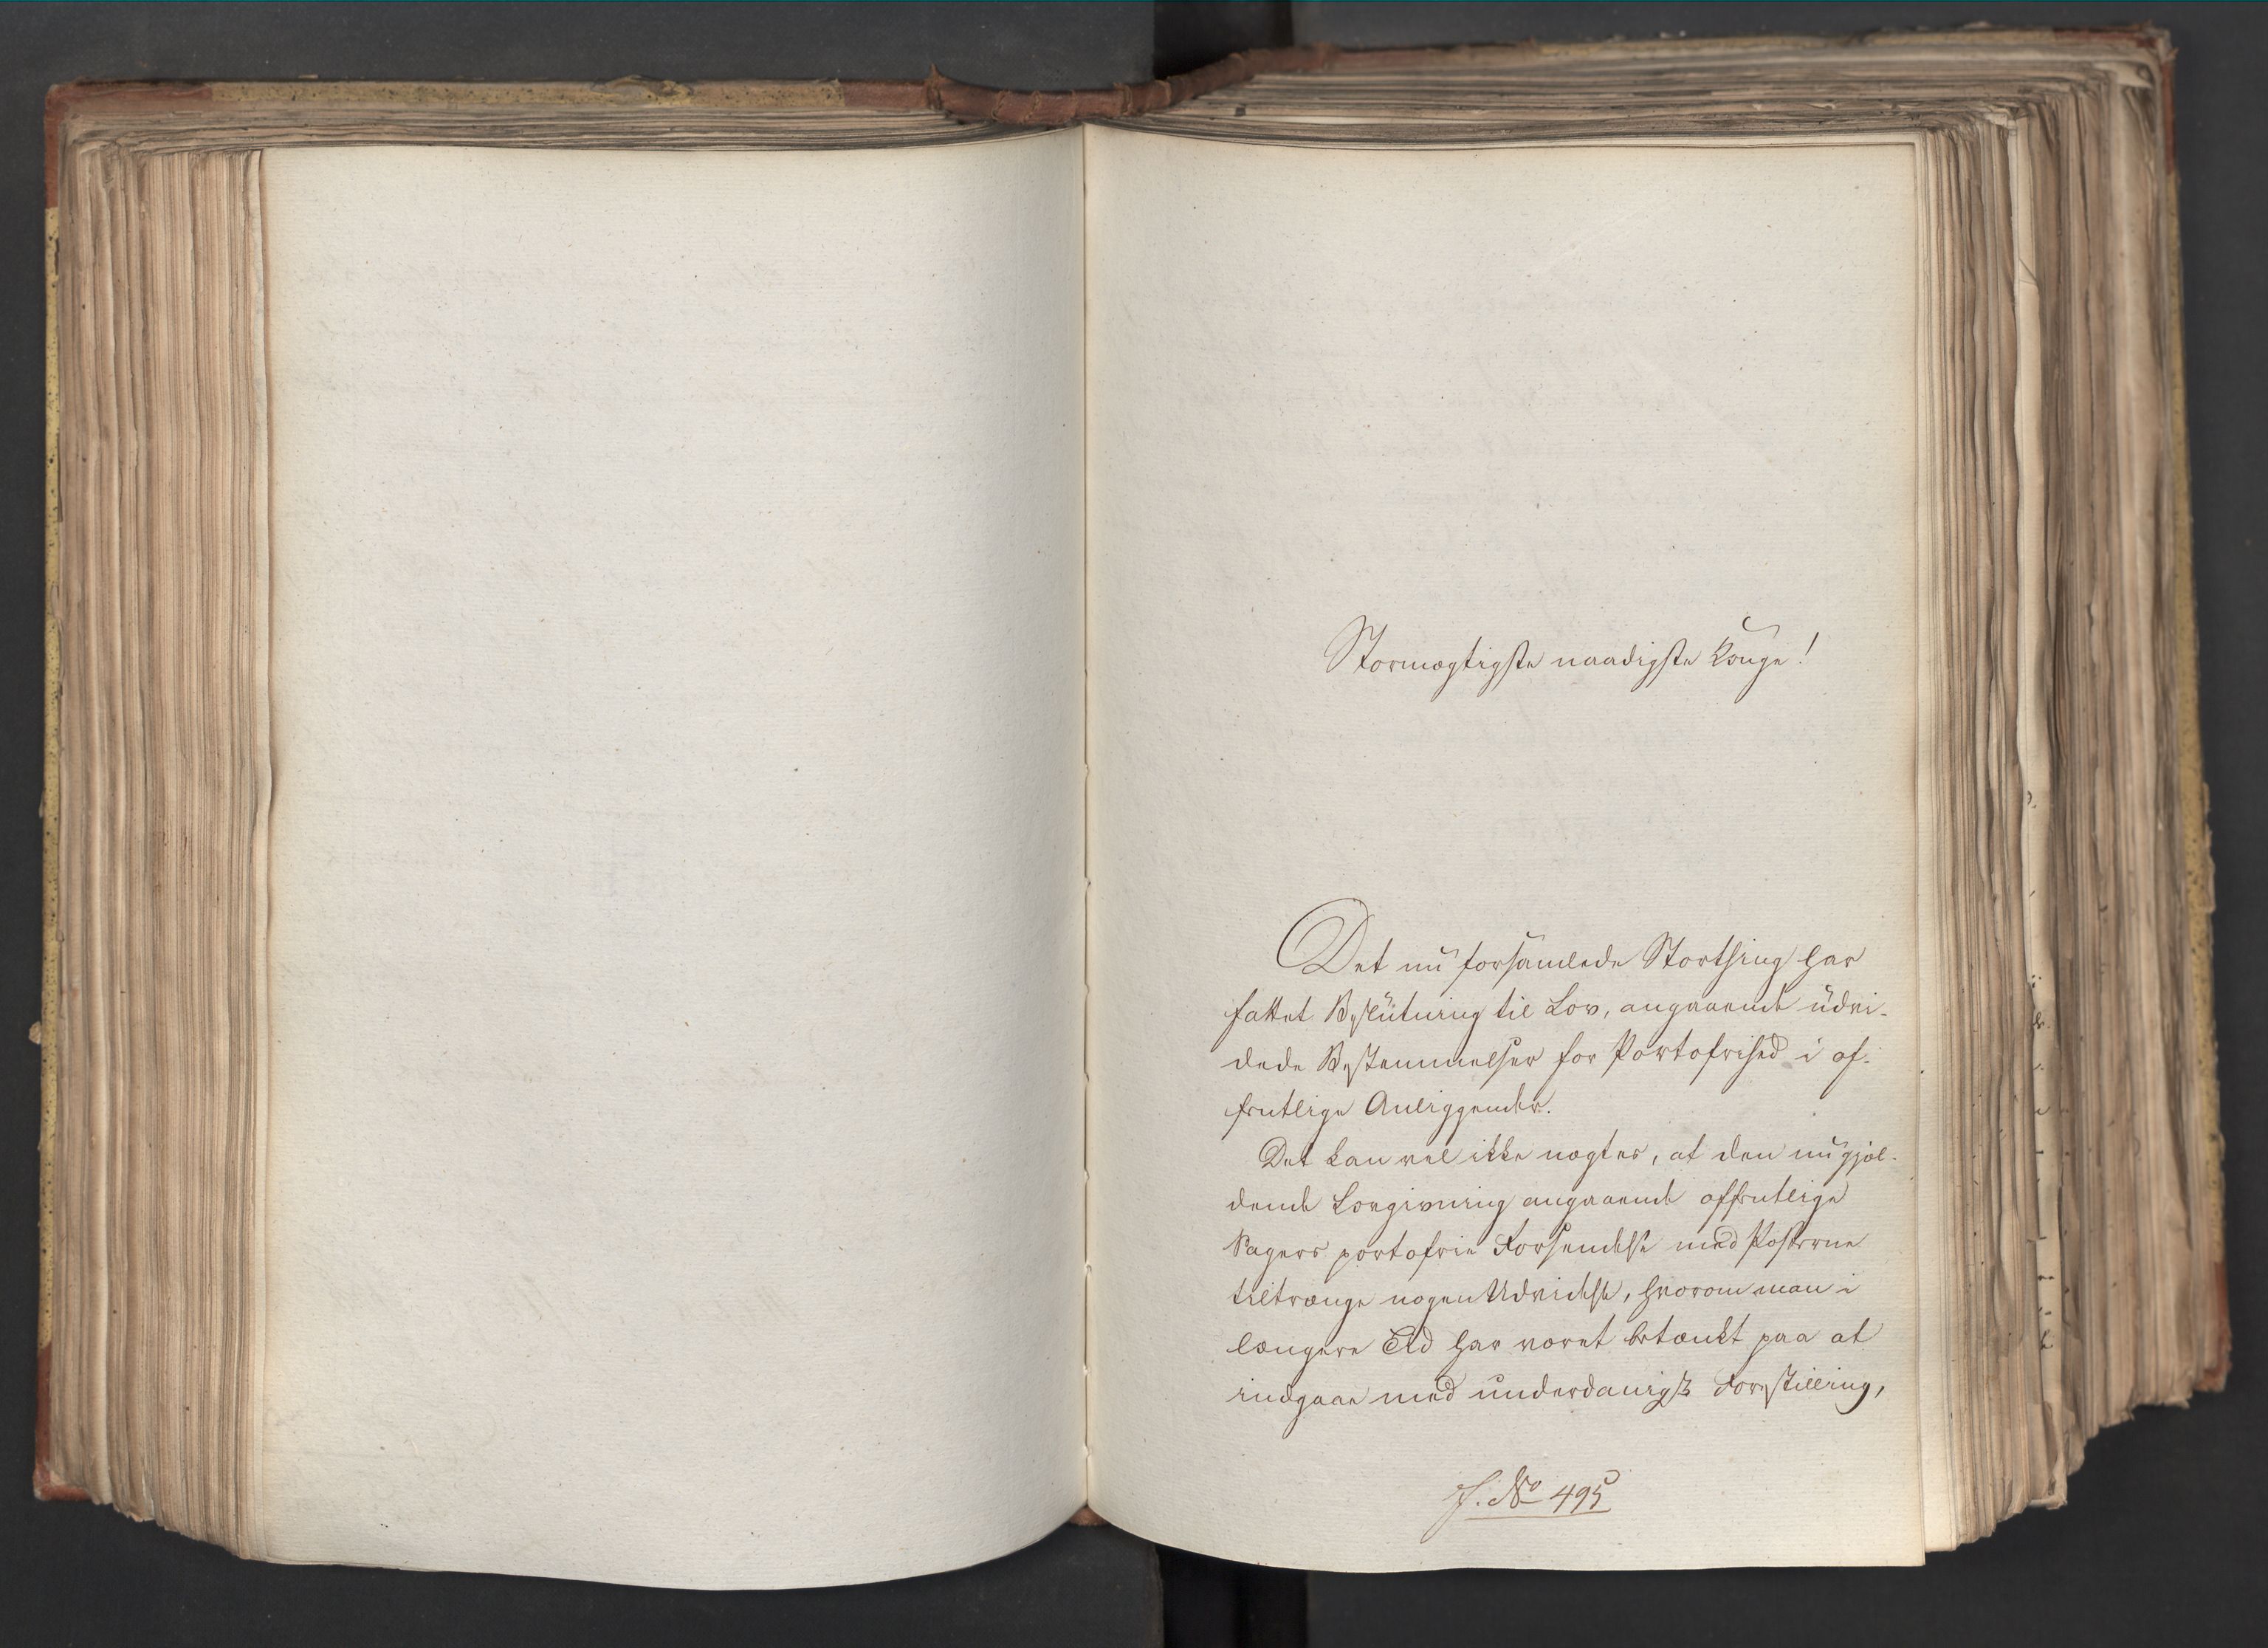 Stormægtigste naadigste Konge!
Det nu forsamlede Storthing har
fattet Beslutning til Lov, angaaende udvi-
dede Bestemmelser for Portofrihed i of-
fentlige Anliggender.
Det kan vel ikke nægtes, at den nugjæl-
dende Lovgivning angaaende offentlige
Sagers portofrie Forsendelse med Posterne
tiltrænge nogen Udvidelse, hvorom man i
længere Tid har været betænkt paa at
indgaae med underdanigst Forestilling,
J. No 495